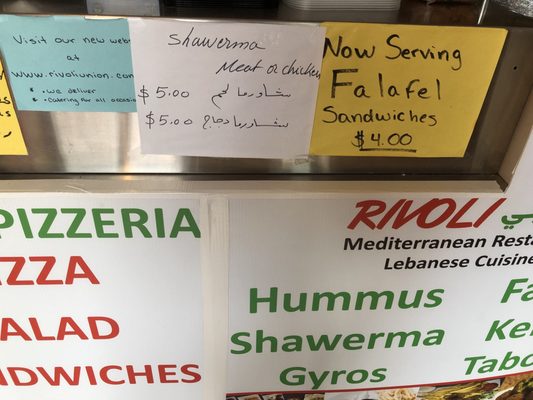 Visit our new web
at
www.rivoliunion.com
• we deliver
• catering for all occasio
Shawerma
Meat or chicken
$5.00 شاورما لحم
$5.00 شاورما دجاج
Now Serving
Falafel
Sandwiches
$4.00
PIZZERIA
ZZA
ALAD
DWICHES
RIVOLI
Mediterranean Resta
Lebanese Cuisine
Hummus
Shawerma
Gyros
Fa
Ke
Tabo